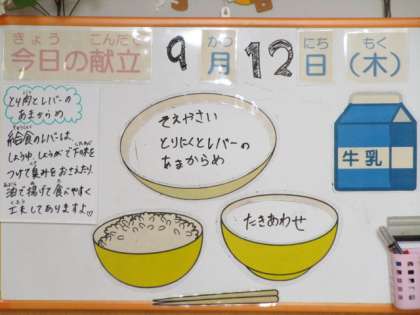 きょう こんだて
今日の献立
9月12日(木)
がつ にち もく
とり肉とレバーの
あまからめ
給食のレバーは、
しょうゆ、しょうがで下味を
つけて臭みをおさえたり、
油で揚げて食べやすく
工夫してありますよ♡
そえやさい
とりにくとレバーの
あまからめ
たきあわせ
牛乳